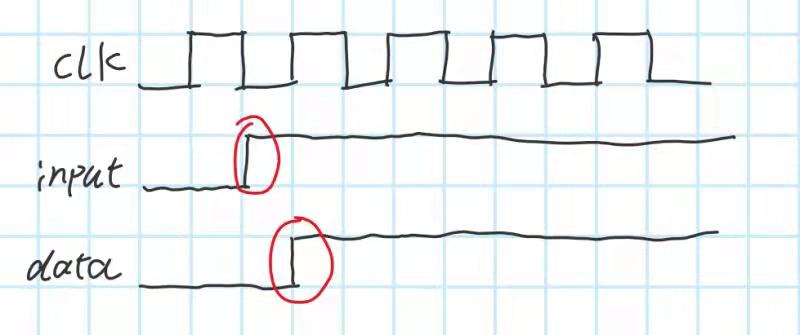 clk
input
data